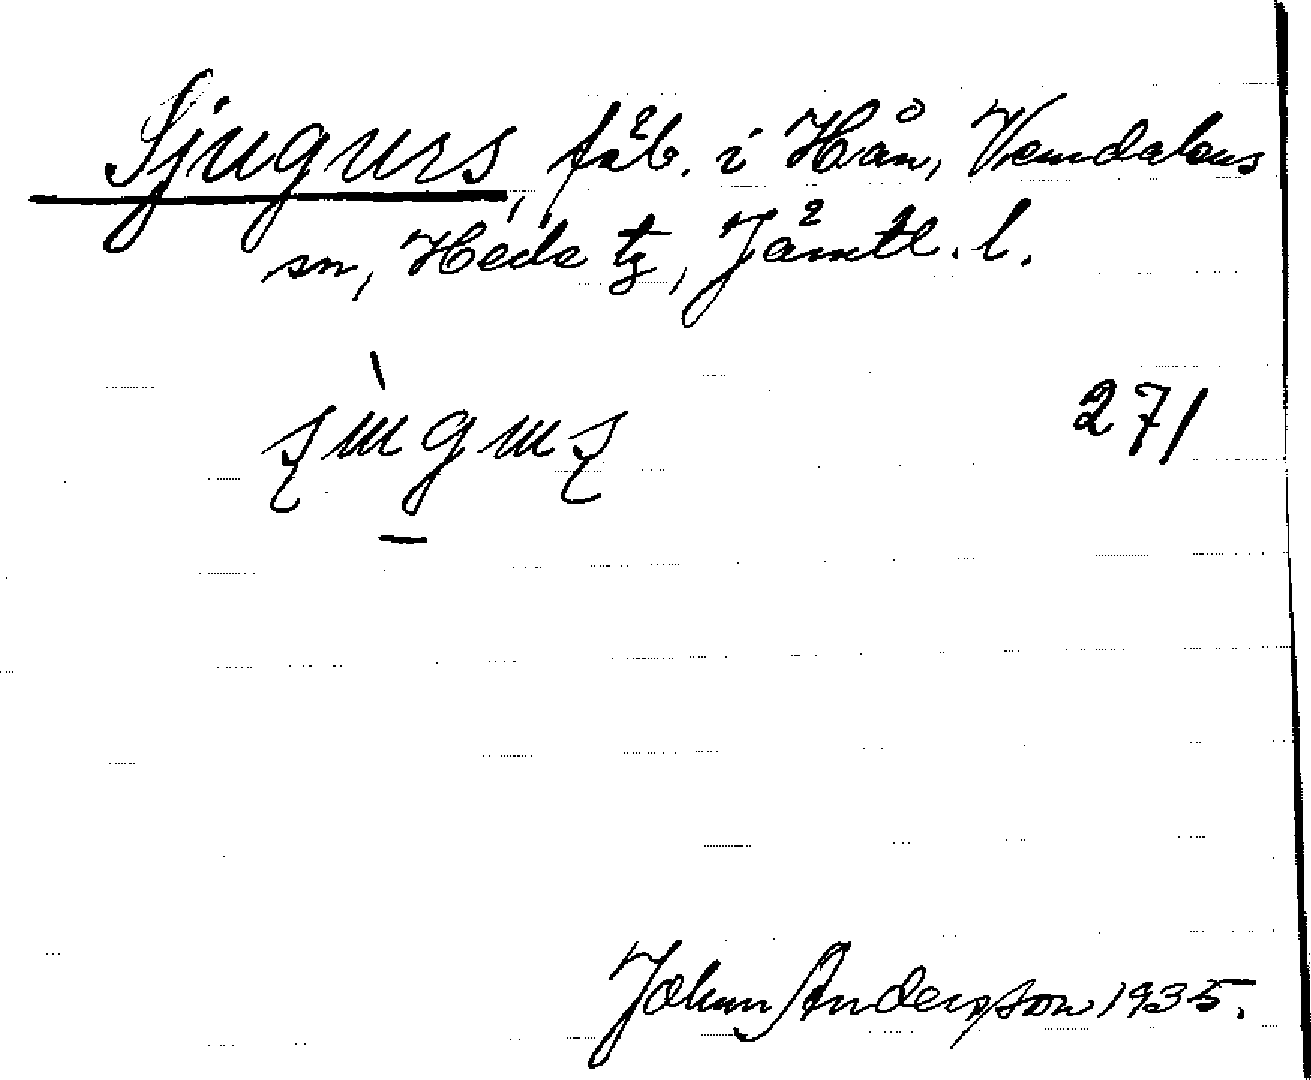 Sjugurs, fäb. i Hån, Vemdalens
sn, Hede tg, Jämtl. l.
271
Johan Anderson 1935.